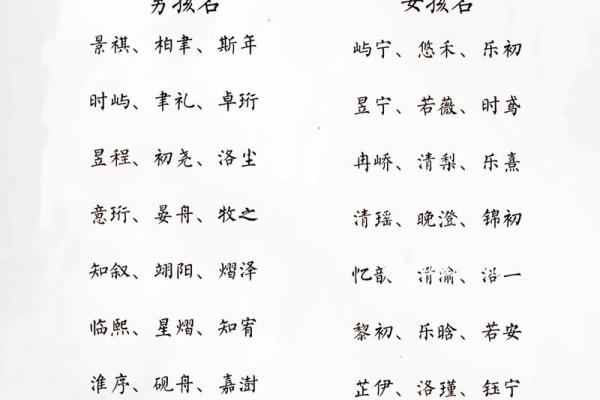 男孩名
景祺、柏聿、斯年
时屿、聿礼、卓珩
昱程、初尧、洛尘
意珩、晏舟、牧之
知叙、翊阳、熠泽
临熙、星熠、知宥
淮序、砚舟、嘉澍
女孩名
屿宁、悠禾、乐初
昱宁、若薇、时鸢
冉峤、清梨、乐熹
清瑶、晚澄、锦初
忆歆 清渝、
黎初、乐晗、若安
芷伊、洛瑾、钰宁